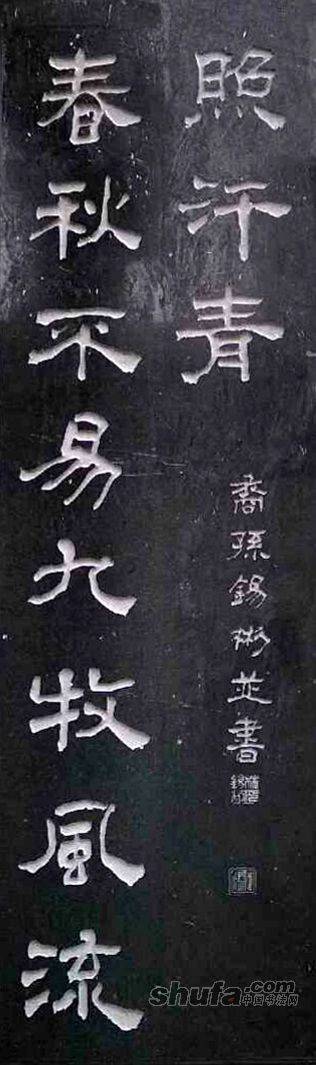 春秋不易九牧風流
照汗青
裔孫錫彬並書
shufa.com
中国书法网